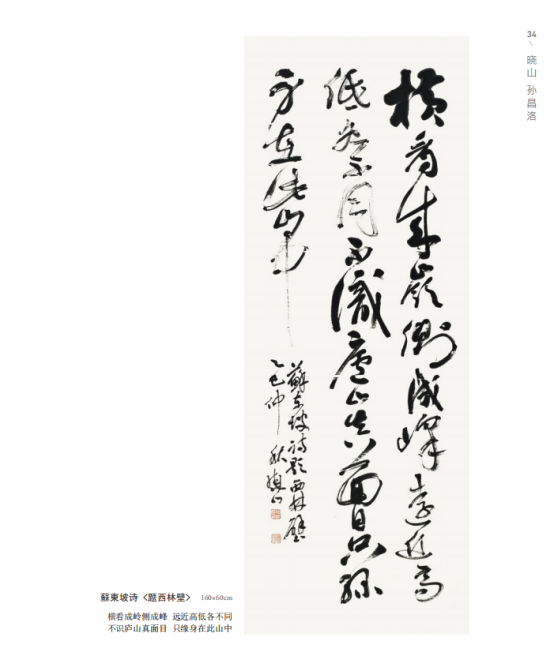 34
\
晓山 孙昌洛
橫看成嶺側成峰遠近高
低各不同不識廬山真面目只緣
身在此山中
蘇東坡詩題西林壁
乙巳仲秋曉山
蘇東坡诗〈题西林壁〉 160x60cm
横看成岭侧成峰 远近高低各不同
不识庐山真面目 只缘身在此山中